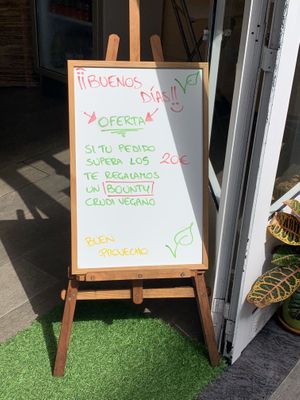 ¡¡BUENOS
DÍAS!!
OFERTA
SI TU PEDIDO
SUPERA LOS 20€
TE REGALAMOS
UN BOUNTY
CRUDI VEGANO
BUEN
PROVECHO